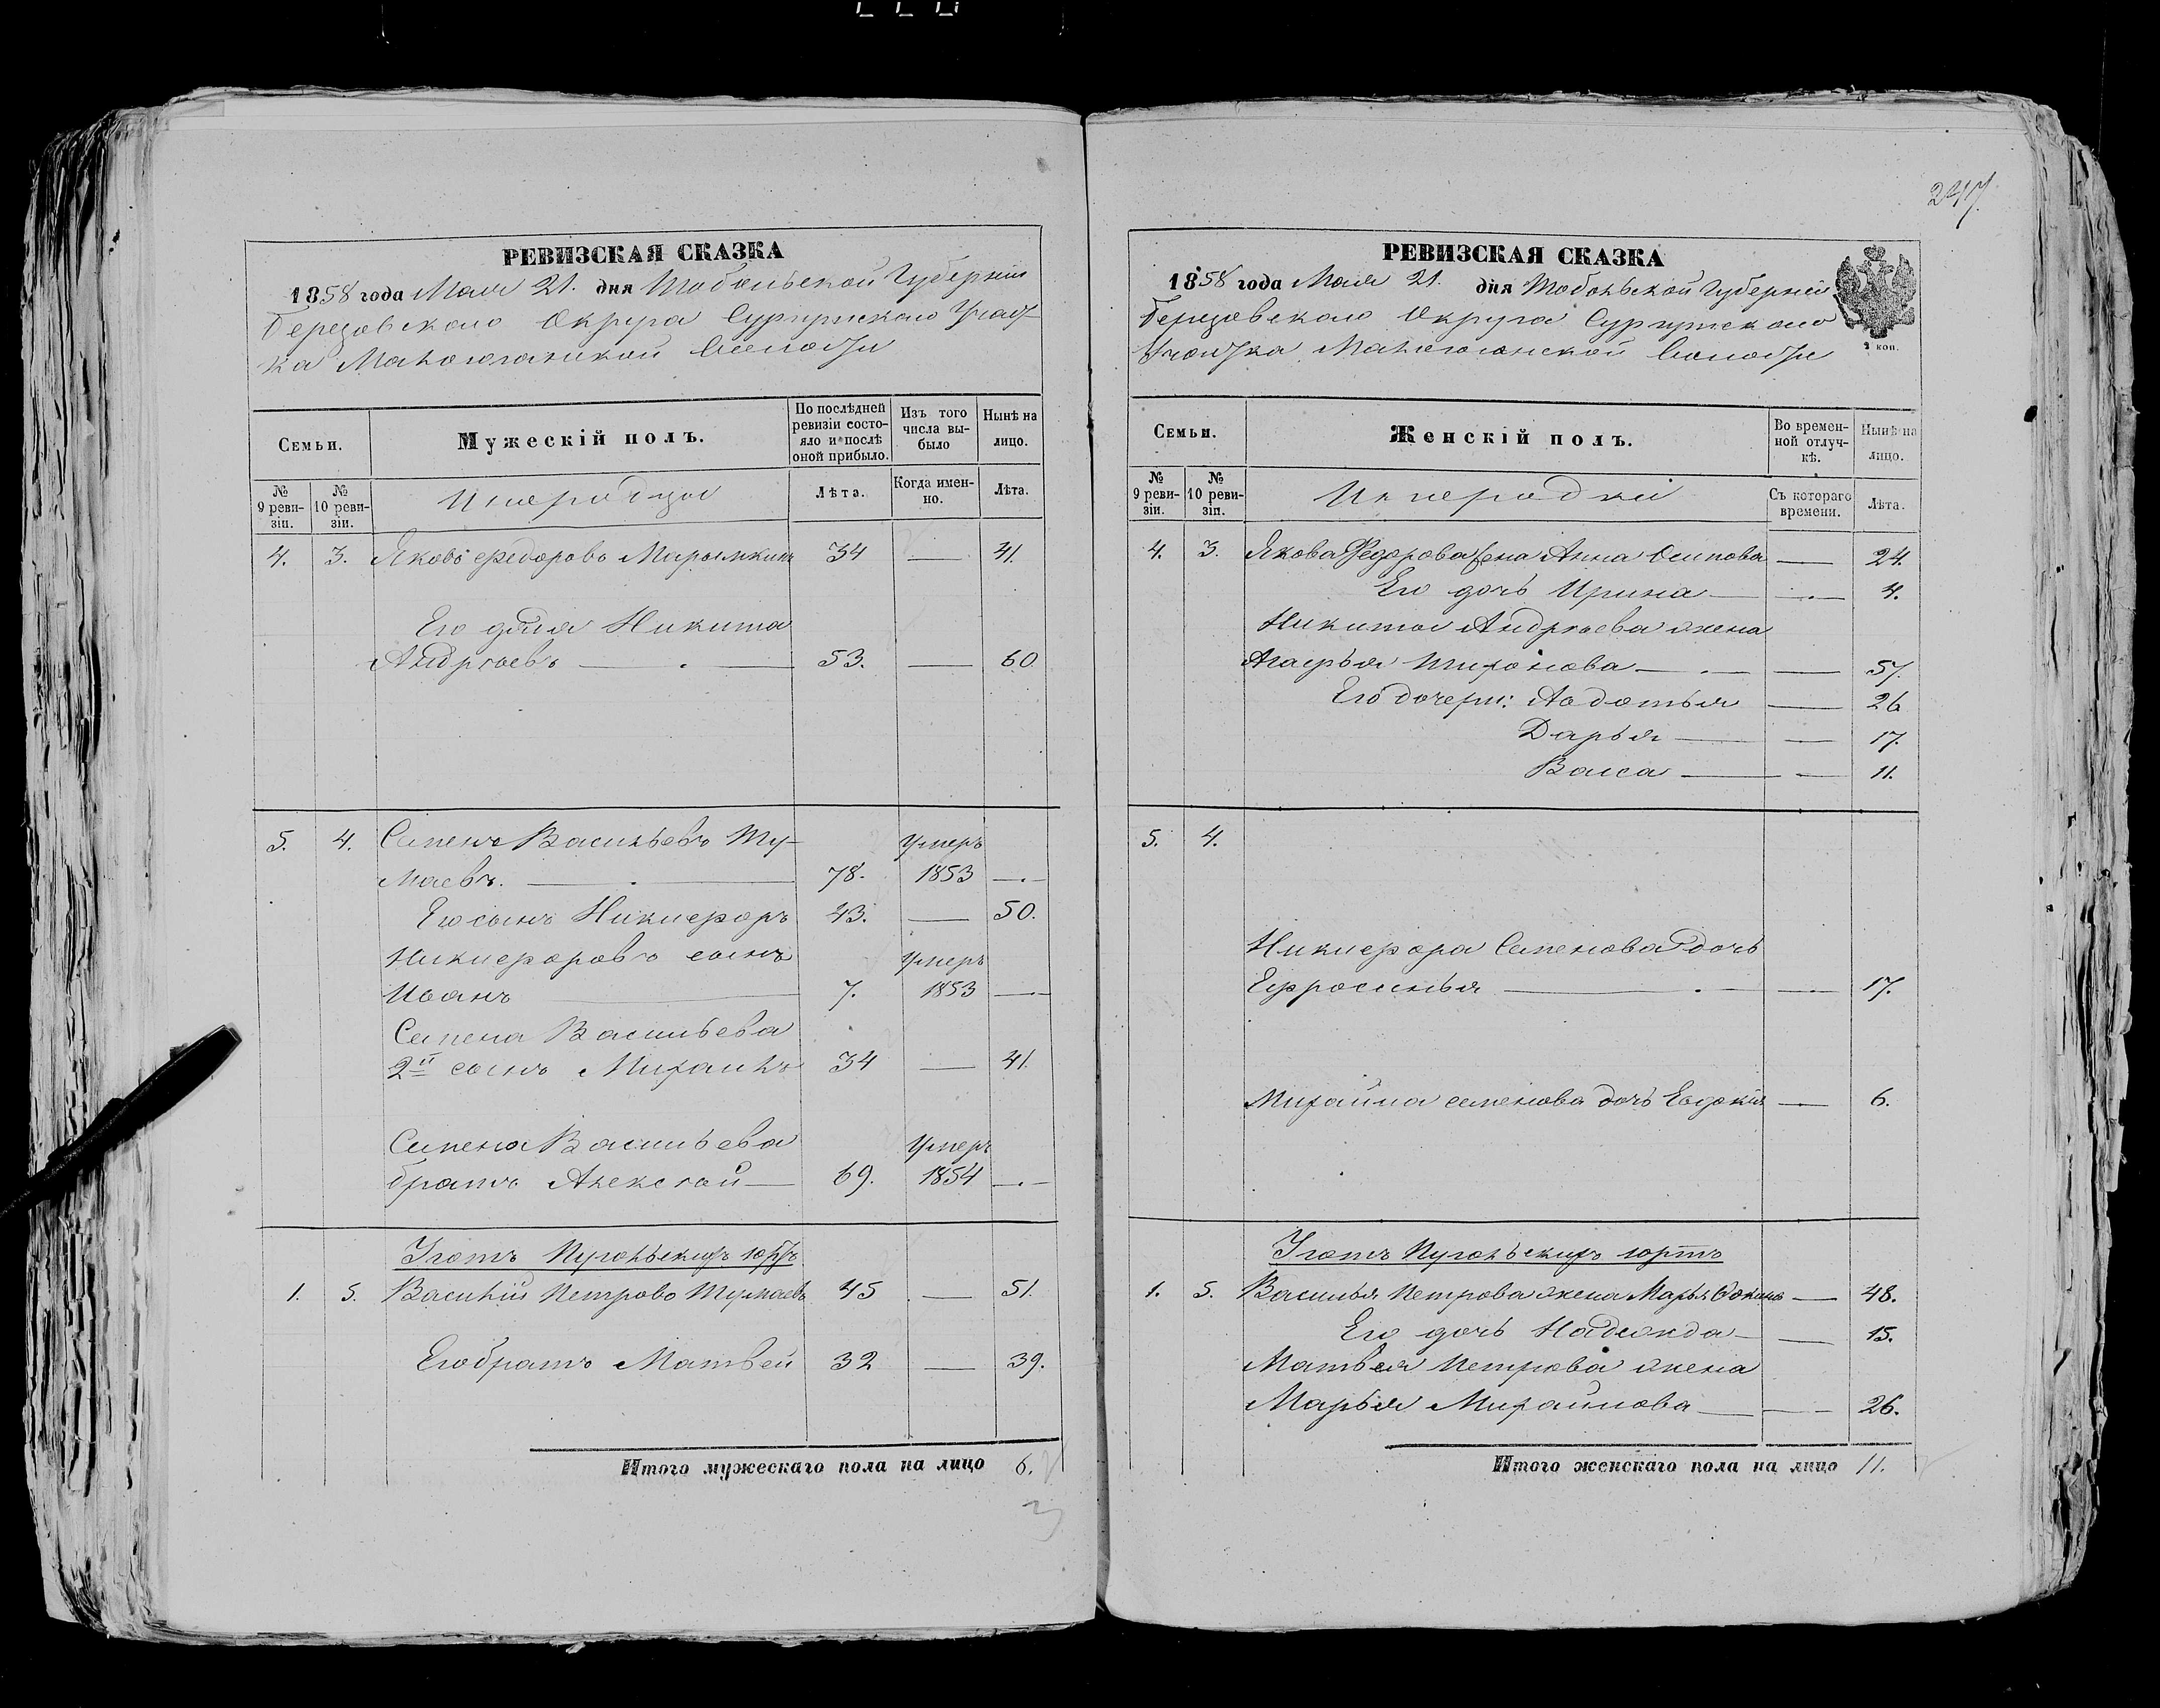 247
РЕВИЗСКАЯ СКАЗКА
1858 года Мая 21. дня Тобольской Губерніи
Березовскаго Округа Сургутскаго Участ-
ка Малоюганской Волости
Семьи.
Мужескій полъ.
По послѣдней ревизіи состояло и послѣ оной прибыло.
Изъ того числа вы-было
Нынѣ на лицо.
№ 9 реви-зіи.
№ 10 реви-зіи.
Инородцы
Лѣта.
Когда имен-но.
Лѣта.
4. 3. Яковъ Федоровъ Марымкинъ 34 — 41.
Его дядя Никита
Андреевъ — 53. — 60
5. 4. Семенъ Васильевъ Ту- Умеръ
маевъ. — 78. 1853 —
Его сынъ Никифоръ 43. — 50.
Никифоровъ сынъ Умеръ
Иванъ — 7. 1853 —
Семена Васильева
2й сынъ Михаилъ 34 — 41.
Семена Васильева Умеръ
братъ Алексѣй — 69. 1854 —
Юртъ
1. 5. Василій Петровъ Тумаевъ 45 — 51.
Его братъ Матвей 32 — 39.
Итого мужескаго пола на лицо 6.
РЕВИЗСКАЯ СКАЗКА
1858 года Мая 21. дня Тобольской Губерніи
Березовскаго Округа Сургутскаго
Участка Малоюганской Волости
2 коп.
Семьи.
Женскій полъ.
Во времен-ной отлуч-кѣ.
Нынѣ на лицо.
№ 9 реви-зіи.
№ 10 реви-зіи.
Инородки
Съ котораго времени.
Лѣта.
4. 3. Якова Федорова жена Анна Осипова — 24.
Его дочь Ирина — — 4.
Никиты Андреева жена
Агафья Тихонова — — 57.
Его дочери: Авдотья — 26
Дарья — — 17.
Васса — — 11.
5. 4.
Никифора Семенова дочь
Ефросинья — — 17.
Михайла Семенова дочь Евдокія — 6.
юртъ
1. 5. Василья Петрова жена Марья — 48.
Его дочь Надежда — — 15.
Матвея Петрова жена
Марья Михайлова — — 26.
Итого женскаго пола на лицо 11.